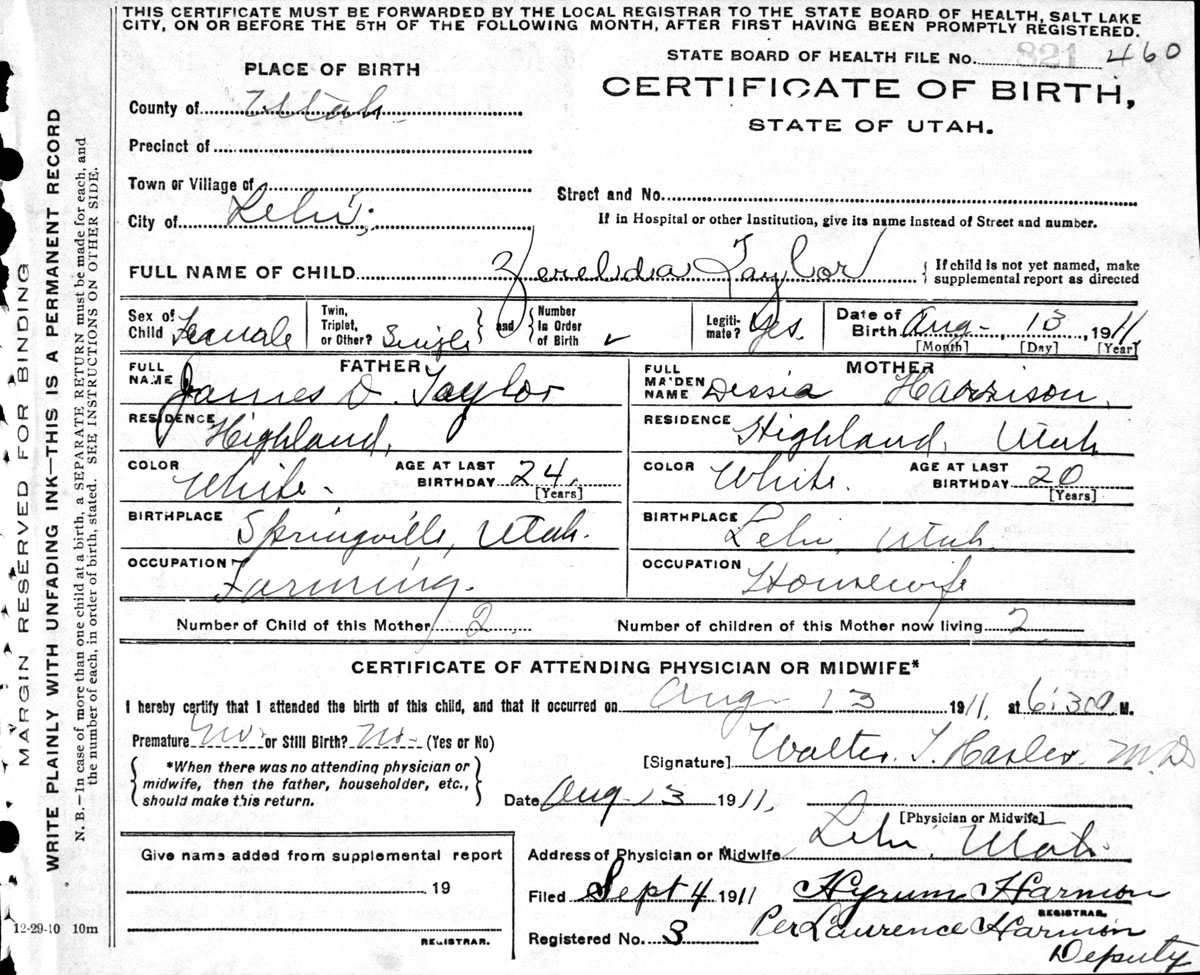 THIS CERTIFICATE MUST BE FORWARDED BY THE LOCAL REGISTRAR TO THE STATE BOARD OF HEALTH, SALT LAKE
CITY, ON OR BEFORE THE 5TH OF THE FOLLOWING MONTH, AFTER FIRST HAVING BEEN PROMPTLY REGISTERED.
STATE BOARD OF HEALTH FILE No. 821 460
PLACE OF BIRTH
CERTIFICATE OF BIRTH,
STATE OF UTAH.
County of Utah
Precinct of
Town or Village of
Street and No.
City of Lehi
If in Hospital or other Institution, give its name instead of Street and number.
FULL NAME OF CHILD Zerelda Taylor { If child is not yet named, make
supplemental report as directed
Sex of Child Female
Twin, Triplet, or Other? Single } and { Number In Order of Birth ✓
Legiti-mate? Yes.
Date of Birth Aug. 13, 1911
[Month] [Day] [Year]
FATHER
FULL NAME James D. Taylor
MOTHER
FULL MA'DEN NAME Dessia Harrison.
RESIDENCE Highland,
RESIDENCE Highland, Utah
COLOR White. AGE AT LAST BIRTHDAY 24. [Years]
COLOR White. AGE AT LAST BIRTHDAY 20 [Years]
BIRTHPLACE Springville, Utah.
BIRTHPLACE Lehi, Utah.
OCCUPATION Farming.
OCCUPATION Housewife
Number of Child of this Mother 2 Number of children of this Mother now living 2
CERTIFICATE OF ATTENDING PHYSICIAN OR MIDWIFE*
I hereby certify that I attended the birth of this child, and that it occurred on Aug 13 1911, at 6:30 a M.
Premature No. or Still Birth? No. (Yes or No)
[Signature] Walter T. Hasler M.D
{ *When there was no attending physician or
midwife, then the father, householder, etc.,
should make this return. }
Date Aug 13 1911,
[Physician or Midwife]
Give name added from supplemental report
Address of Physician or Midwife Lehi, Utah
19
Filed Sept 4 1911 Hyrum Harmon
REGISTRAR.
Registered No. 3 Per Laurence Harmon
Deputy
REGISTRAR.
12-29-10 10m
MARGIN RESERVED FOR BINDING
WRITE PLAINLY WITH UNFADING INK—THIS IS A PERMANENT RECORD
N. B.—In case of more than one child at a birth, a SEPARATE RETURN must be made for each, and
the number of each, in order of birth, stated. SEE INSTRUCTIONS ON OTHER SIDE.